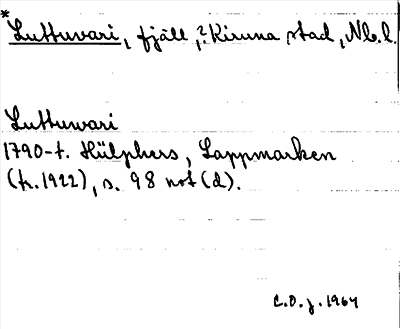 *Luttuvari, fjäll, ?Kiruna stad, Nb.l.
Luttuwari
1790-t. Hülphers, Lappmarken
(tr. 1922), s. 98 not (d).
C.O.J. 1964